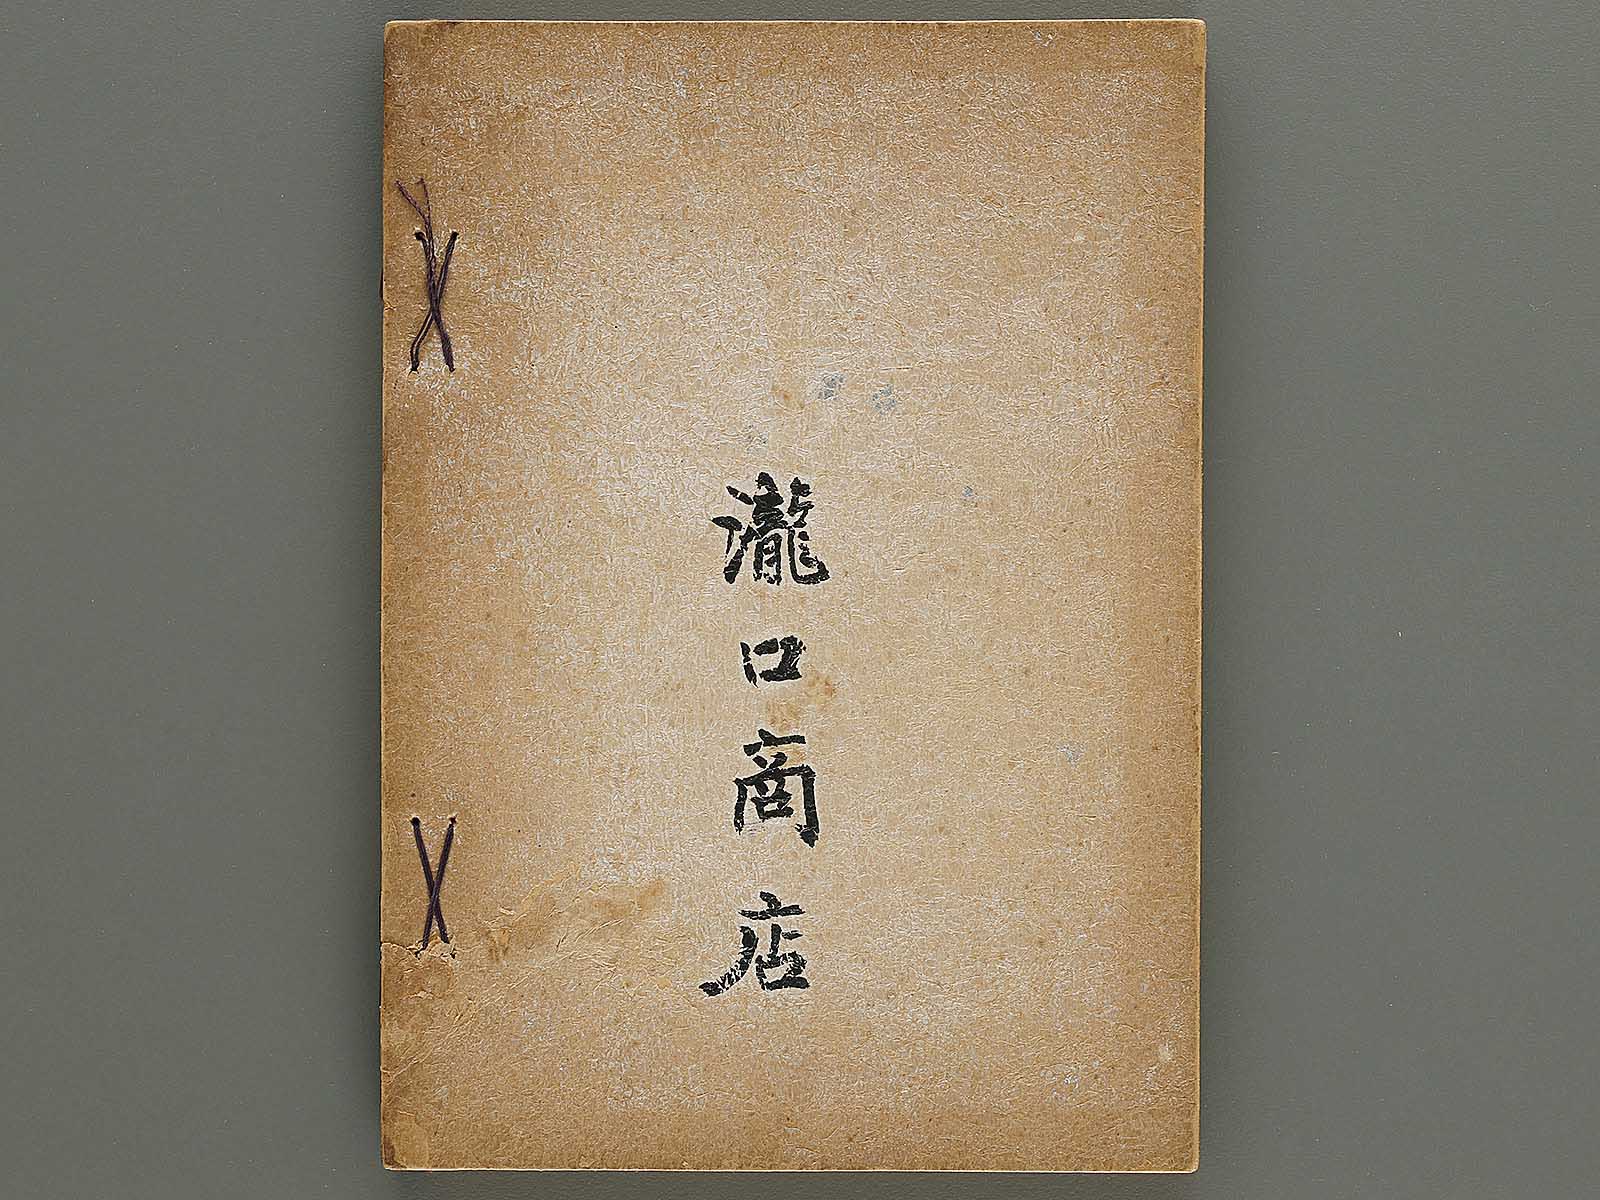 瀧口商店